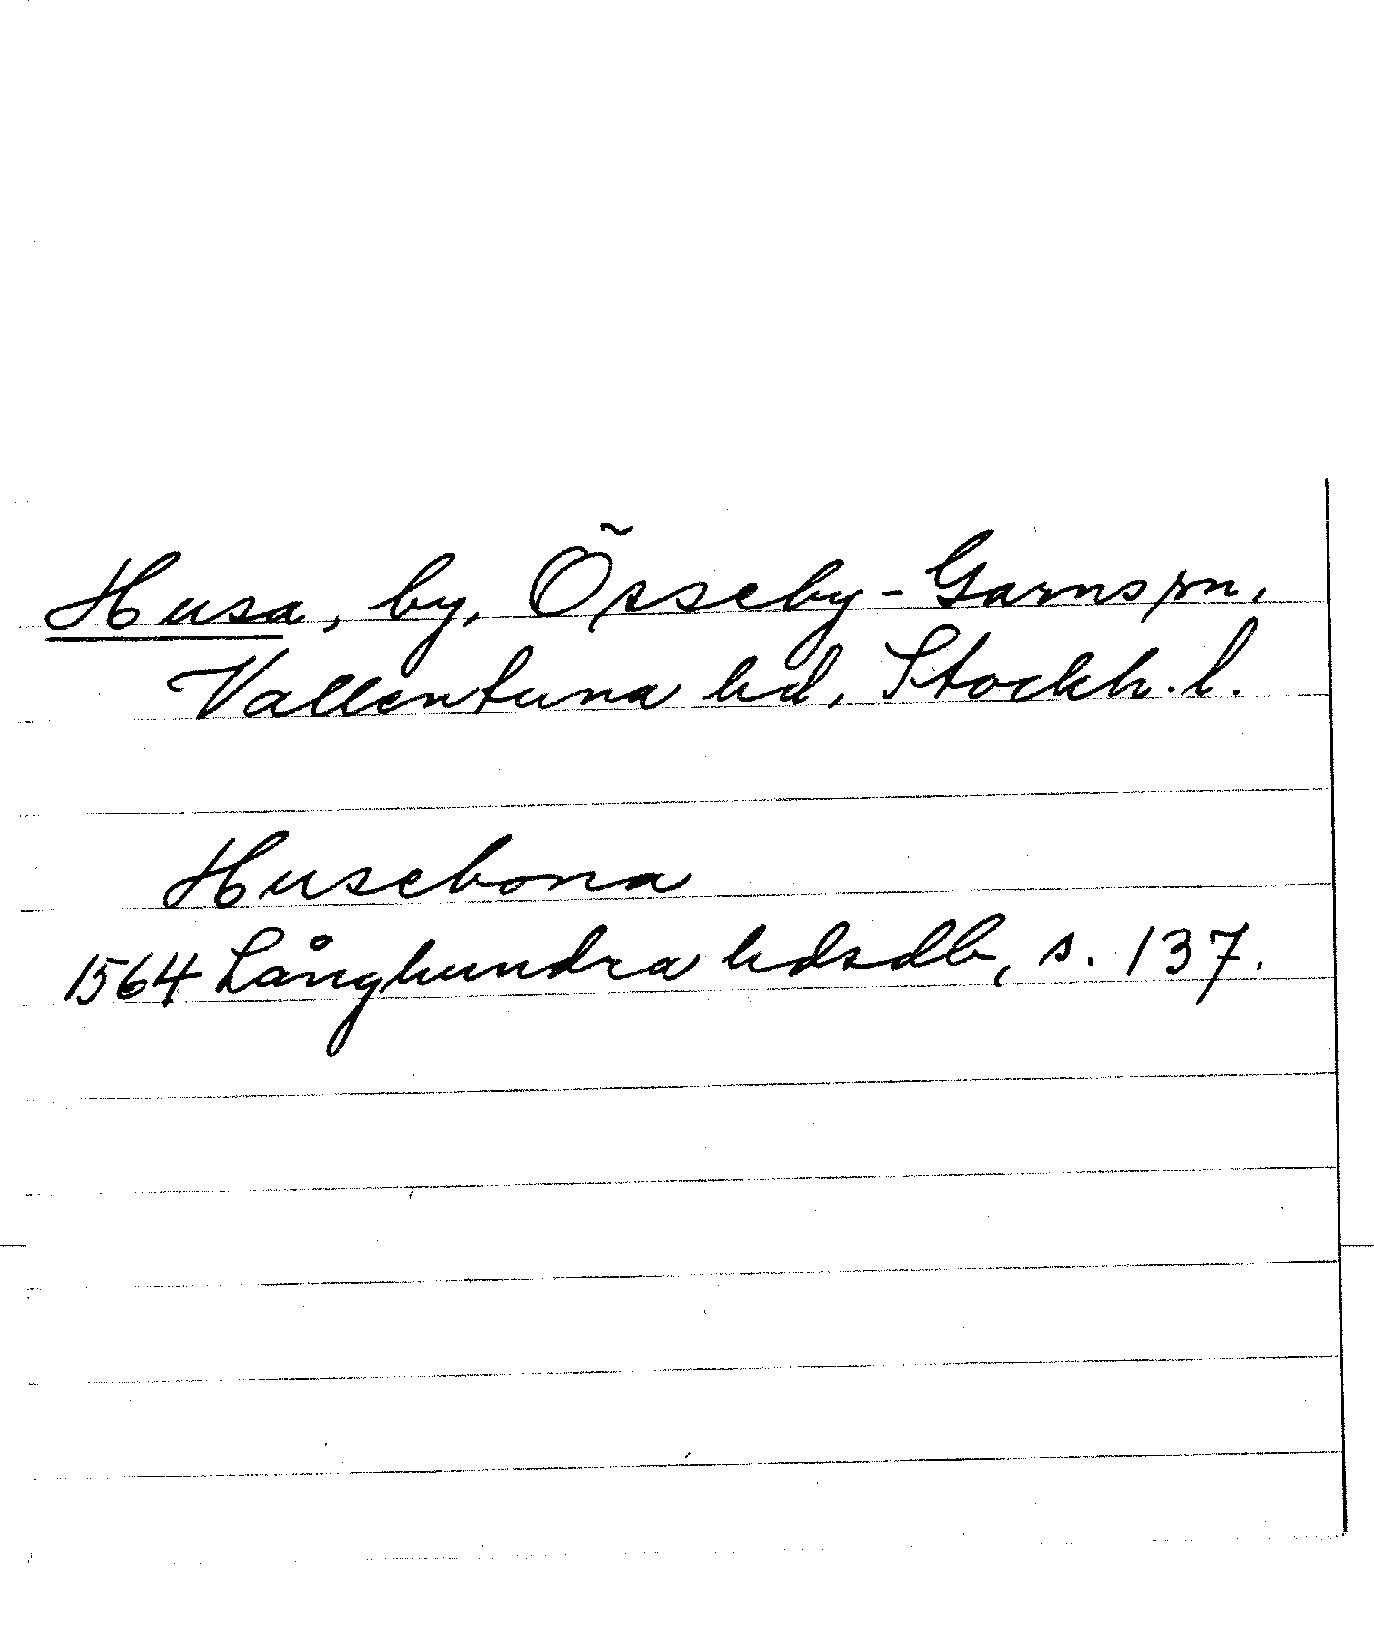 Husa, by, Össeby-Garns sn,
Vallentuna hd, Stockh. l.
Husebona
1564 Långhundra hdsdb, s. 137.